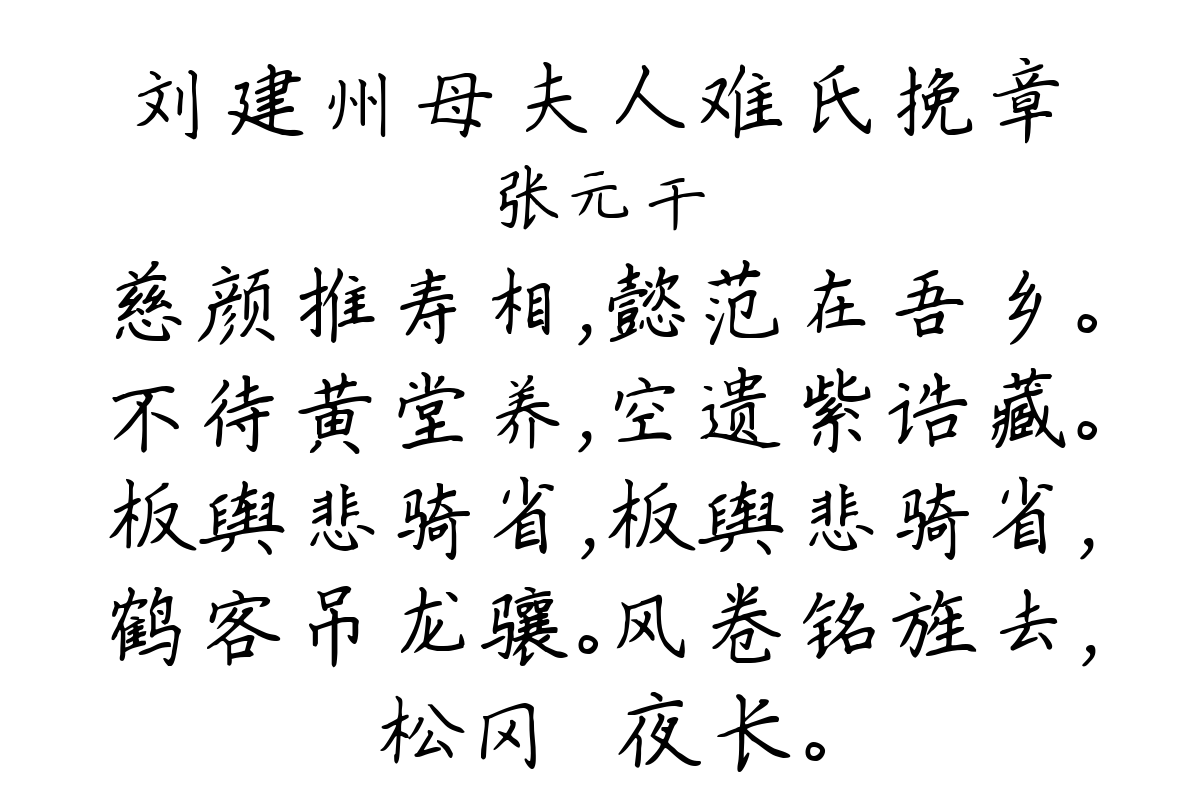 刘建州母夫人难氏挽章
张元干
慈颜推寿相,懿范在吾乡。
不待黄堂养,空遗紫诰藏。
板舆悲骑省,板舆悲骑省,
鹤客吊龙骧。风卷铭旌去,
松冈 夜长。